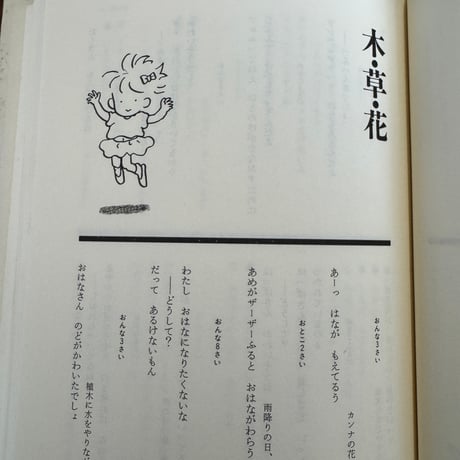 木・草・花
おんな3さい
あーっ　はなが　もえてるう
カンナの花
おとこ2さい
あめがザーザーふると　おはながわらう
雨降りの日、
おんな8さい
わたし　おはなになりたくないな
――どうして？
だって　あるけないもん
おんな3さい
おはなさん　のどがかわいたでしょ
植木に水をやりな